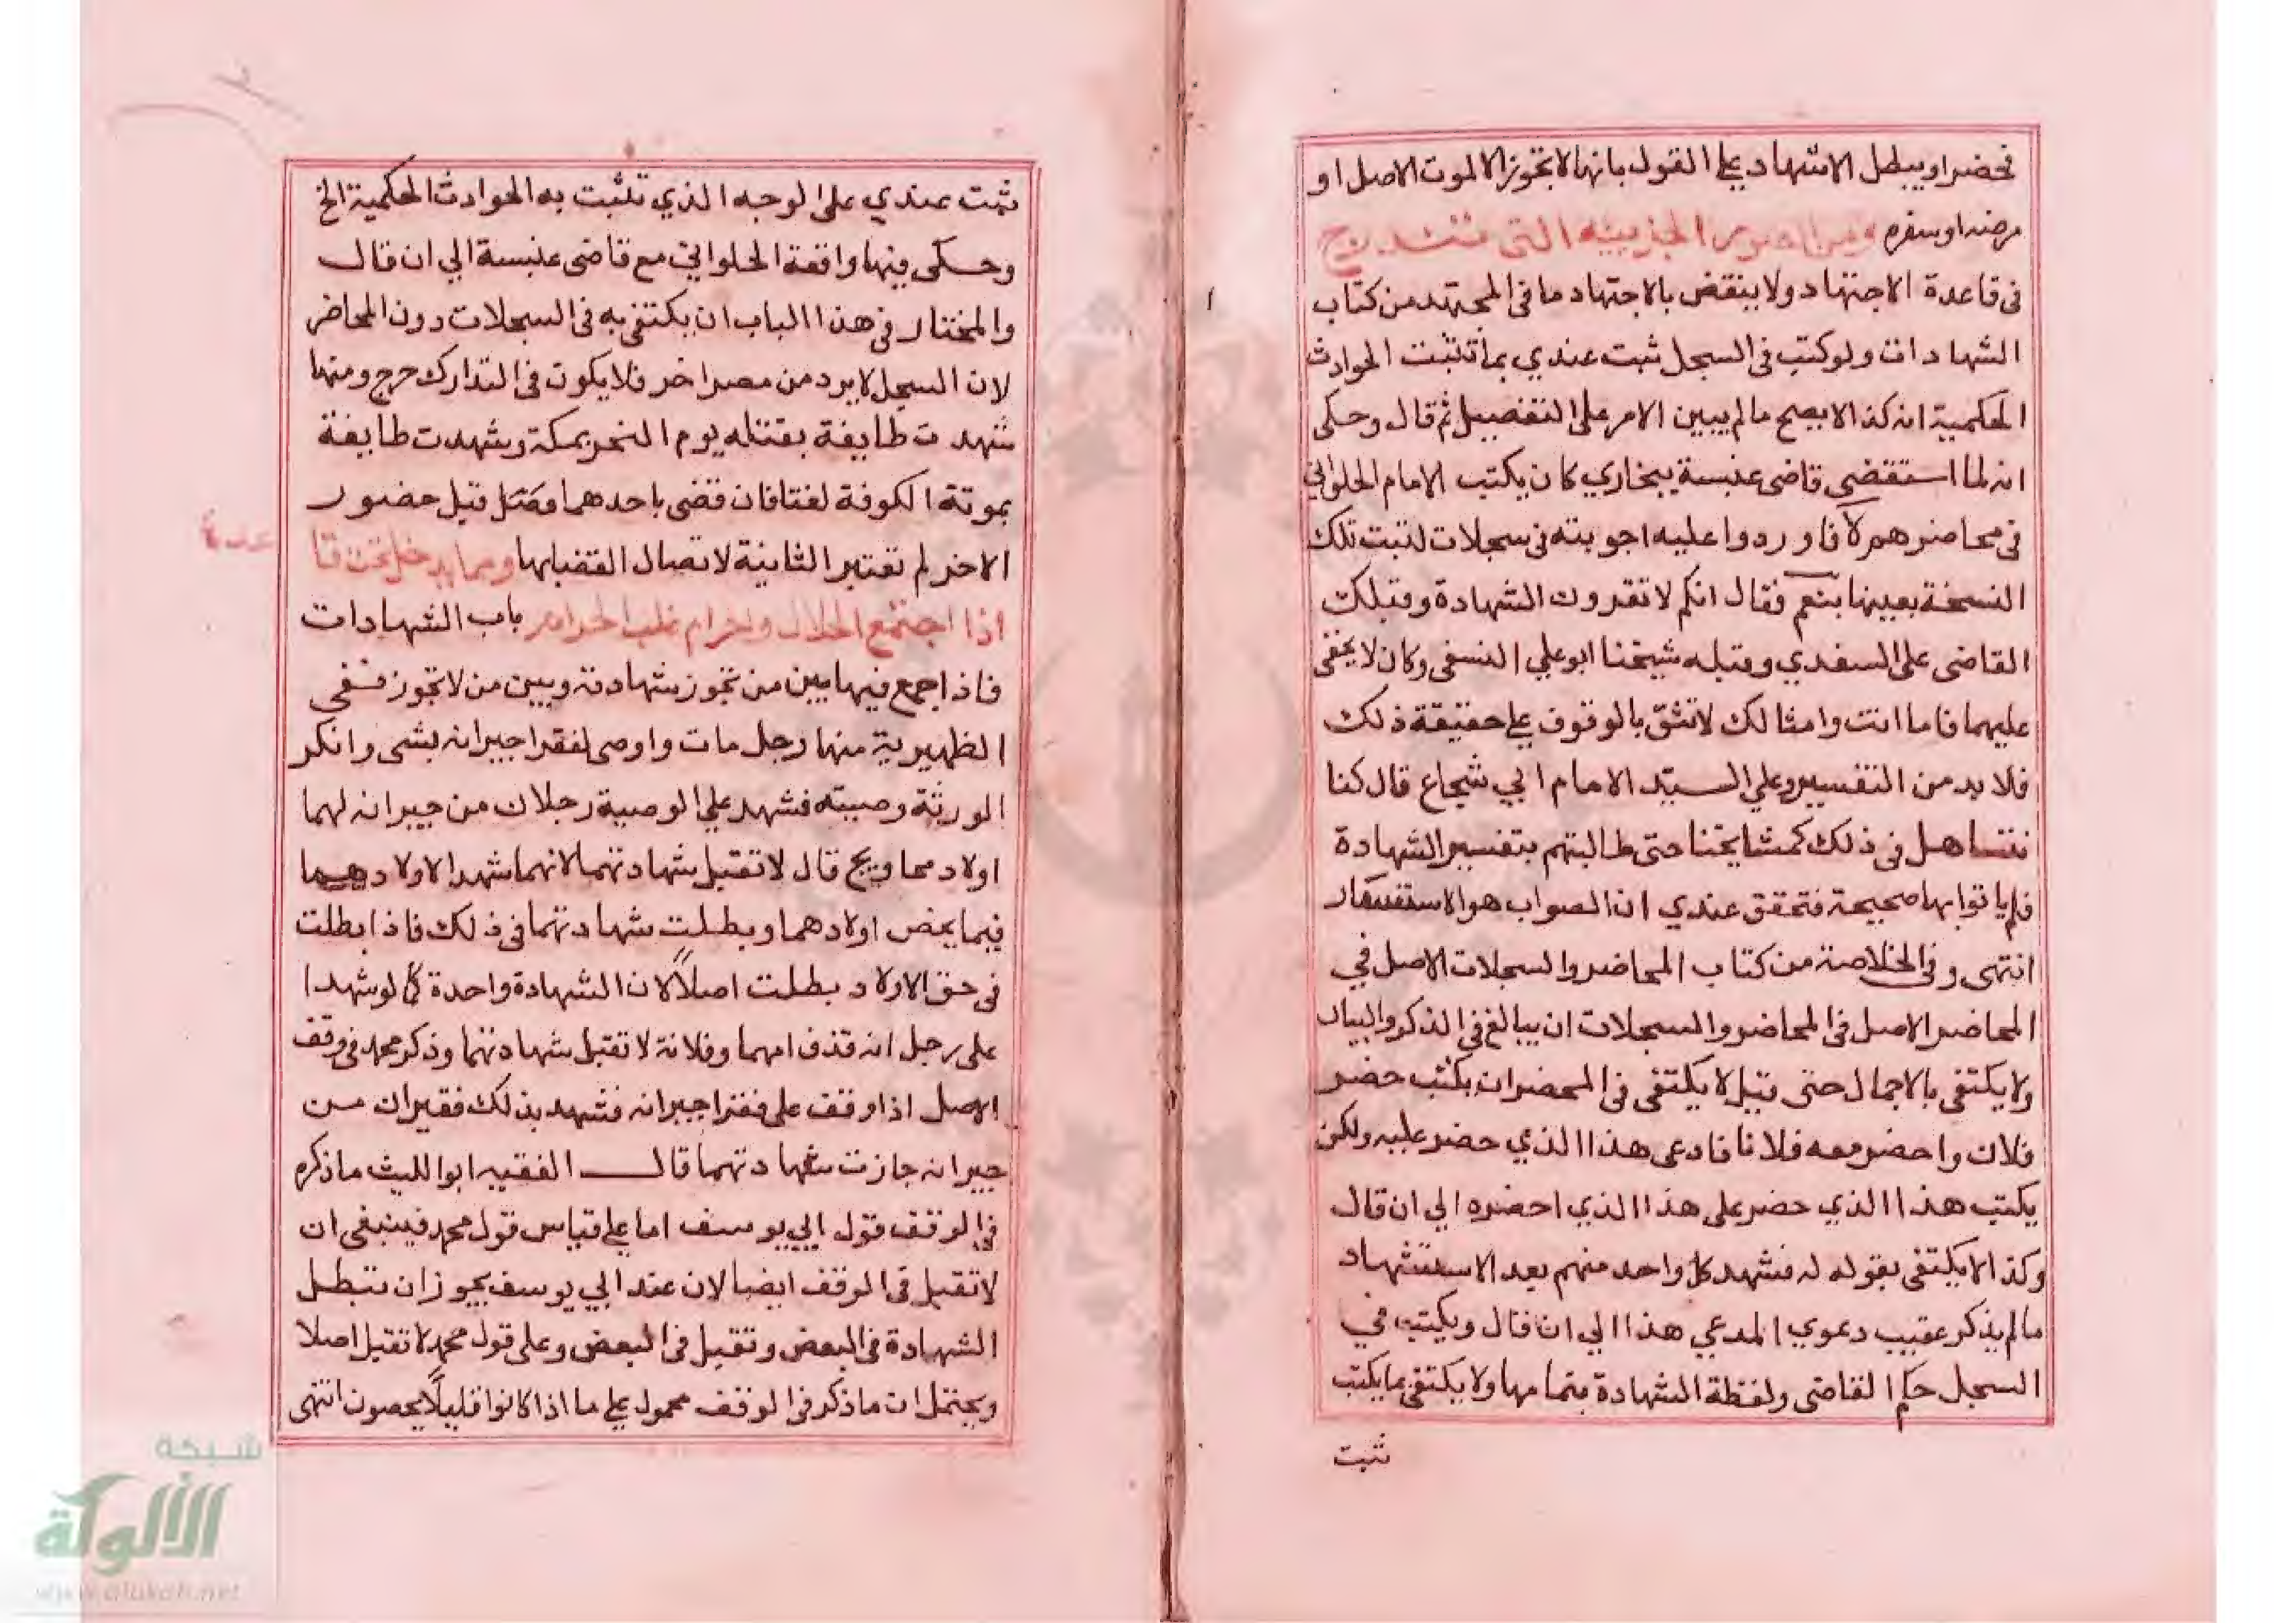 فحضر او يبطل الاشهاد على القول بانها لا تجوز الا لموت الاصل او
مرضه او سفره ومن الصور الجزيية التي تندرج
فى قاعدة الاجتهاد ولا ينقض بالاجتهاد ما فى المجتهد من كتاب
الشهادات ولو كتب فى السجل ثبت عندي بما تثبت الحوادث
الحكمية انه كذا لا يصح ما لم يبين الامر على التفصيل ثم قال وحكى
انه لما استقضى قاضى عنبسة ببخاري كان يكتب الامام الحلواني
فى محاضرهم لا فاوردوا عليه اجوبته فى سجلات لتبت تلك
النسخة بعينها بنعم فقال انكم لا تقرون الشهادة وقبلك
القاضى على السغدي وقبله شيخنا ابو علي النسفى وكان لا يخفى
عليهما فاما انت وامثالك لا تثق بالوقوف على حقيقة ذلك
فلا بد من التفسير وعلي السيد الامام ابي شجاع قال كنا
نتساهل فى ذلك كمشايخنا حتى طالبتهم بتفسير الشهادة
فلم ياتوا بها صحيحة فتحقق عندي ان الصواب هو الاستفسار
انتهى وفى الخلاصة من كتاب المحاضر والسجلات الاصل في
المحاضر الاصل فى المحاضر والسجلات ان يبالغ فى الذكر والبيان
ولا يكتفى بالاجمال حتى قيل لا يكتفى فى المحضر ان يكتب حضر
فلان واحضر معه فلانا فادعى هذا الذي حضر عليه ولكن
يكتب هذا الذي حضر على هذا الذي احضره الي ان قال
وكذا لا يكتفى بقوله له فشهد كل واحد منهم بعد الاستشهاد
ما لم يذكر عقيب دعوي المدعي هذا الي ان قال ويكتب في
السجل حكم القاضى ولفظة الشهادة بتمامها ولا يكتفى بما يكتب
ثبت
ثبت عندي على الوجه الذي تثبت به الحوادث الحكمية الخ
وحكى فيها واقعة الحلواني مع قاضى عنبسة الي ان قال
والمختار فى هذا الباب ان يكتفى به فى السجلات دون المحاضر
لان السجل لا يرد من مصر اخر فلا يكون فى التدارك حرج ومنها
شهدت طايفة بقتله يوم النحر بمكة وشهدت طايفة
بموته الكوفة لغتا فان قضى باحدهما وقتل قبل حضور
الاخر لم تعتبر الثانية لاتصال القضا بها ومما يدخل تحت قا
عدة
اذا اجتمع الحلال والحرام غلب الحرام باب الشهادات
فاذا جمع فيها بين من تجوز شهادته وبين من لا تجوز ففي
الظهيرية منها رجل مات واوصى لفقرا جيرانه بشى وانكر
الورثة وصيته فشهد علي الوصية رجلان من جيرانه لهما
اولاد محاويج قال لا تقبل شهادتهما لانهما شهدا لاولادهما
فيما يخص اولادهما وبطلت شهادتهما فى ذلك فاذا بطلت
فى حق الاولاد بطلت اصلاً لان الشهادة واحدة كما لو شهدا
على رجل انه قذف امهما وفلانة لا تقبل شهادتهما وذكر محمد فى وقف
الاصل اذا وقف على فقرا جيرانه فشهد بذلك فقيران من
جيرانه جازت شهادتهما قال الفقيه ابوالليث ما ذكره
في الوقف قول ابي يوسف اما على قياس قول محمد فينبغى ان
لا تقبل فى الوقف ايضا لان عند ابي يوسف يجوز ان تبطل
الشهادة فى البعض وتقبل فى البعض وعلى قول محمد لا تقبل اصلا
ويحتمل ان ما ذكر فى الوقف محمول على ما اذا كانوا قليلاً يحصون انتهى
شبكة
الألوكة
www.alukah.net